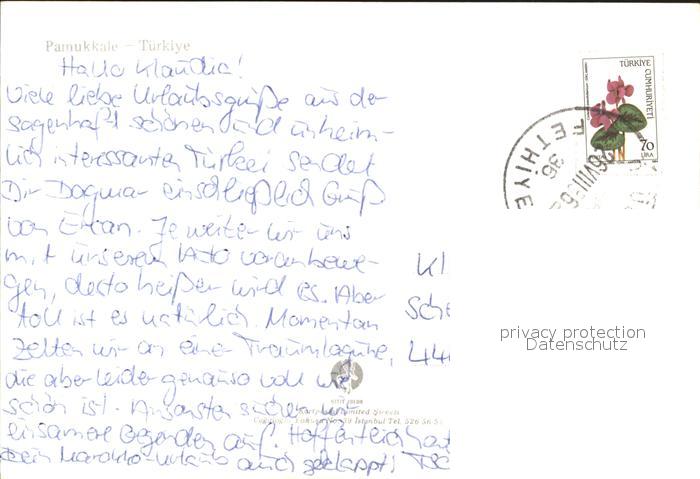 Pamukkale – Türkiye
Hallo Klaudia!
Viele liebe Urlaubsgrüße aus der
sagenhaft schönen und unheim-
lich interessanten Türkei sendet
Dir Dagmar einschließlich Gruß
von Ercan. Je weiter wir uns
mit unserem Auto voranbewe-
gen, desto heißer wird es. Aber
toll ist es natürlich. Momentan
zelten wir an einer Traumlagune,
die aber leider genauso voll wie
schön ist. Ansonsten suchen wir
einsamere Gegenden auf. Hoffentlich hat
Dein Marokko-Urlaub auch geklappt!
TÜRKİYE
CUMHURİYETİ
70
LİRA
FETHİYE
36
Kl
Sche
44
privacy protection
Datenschutz
Limited Şirketi
İstanbul Tel. 526 56